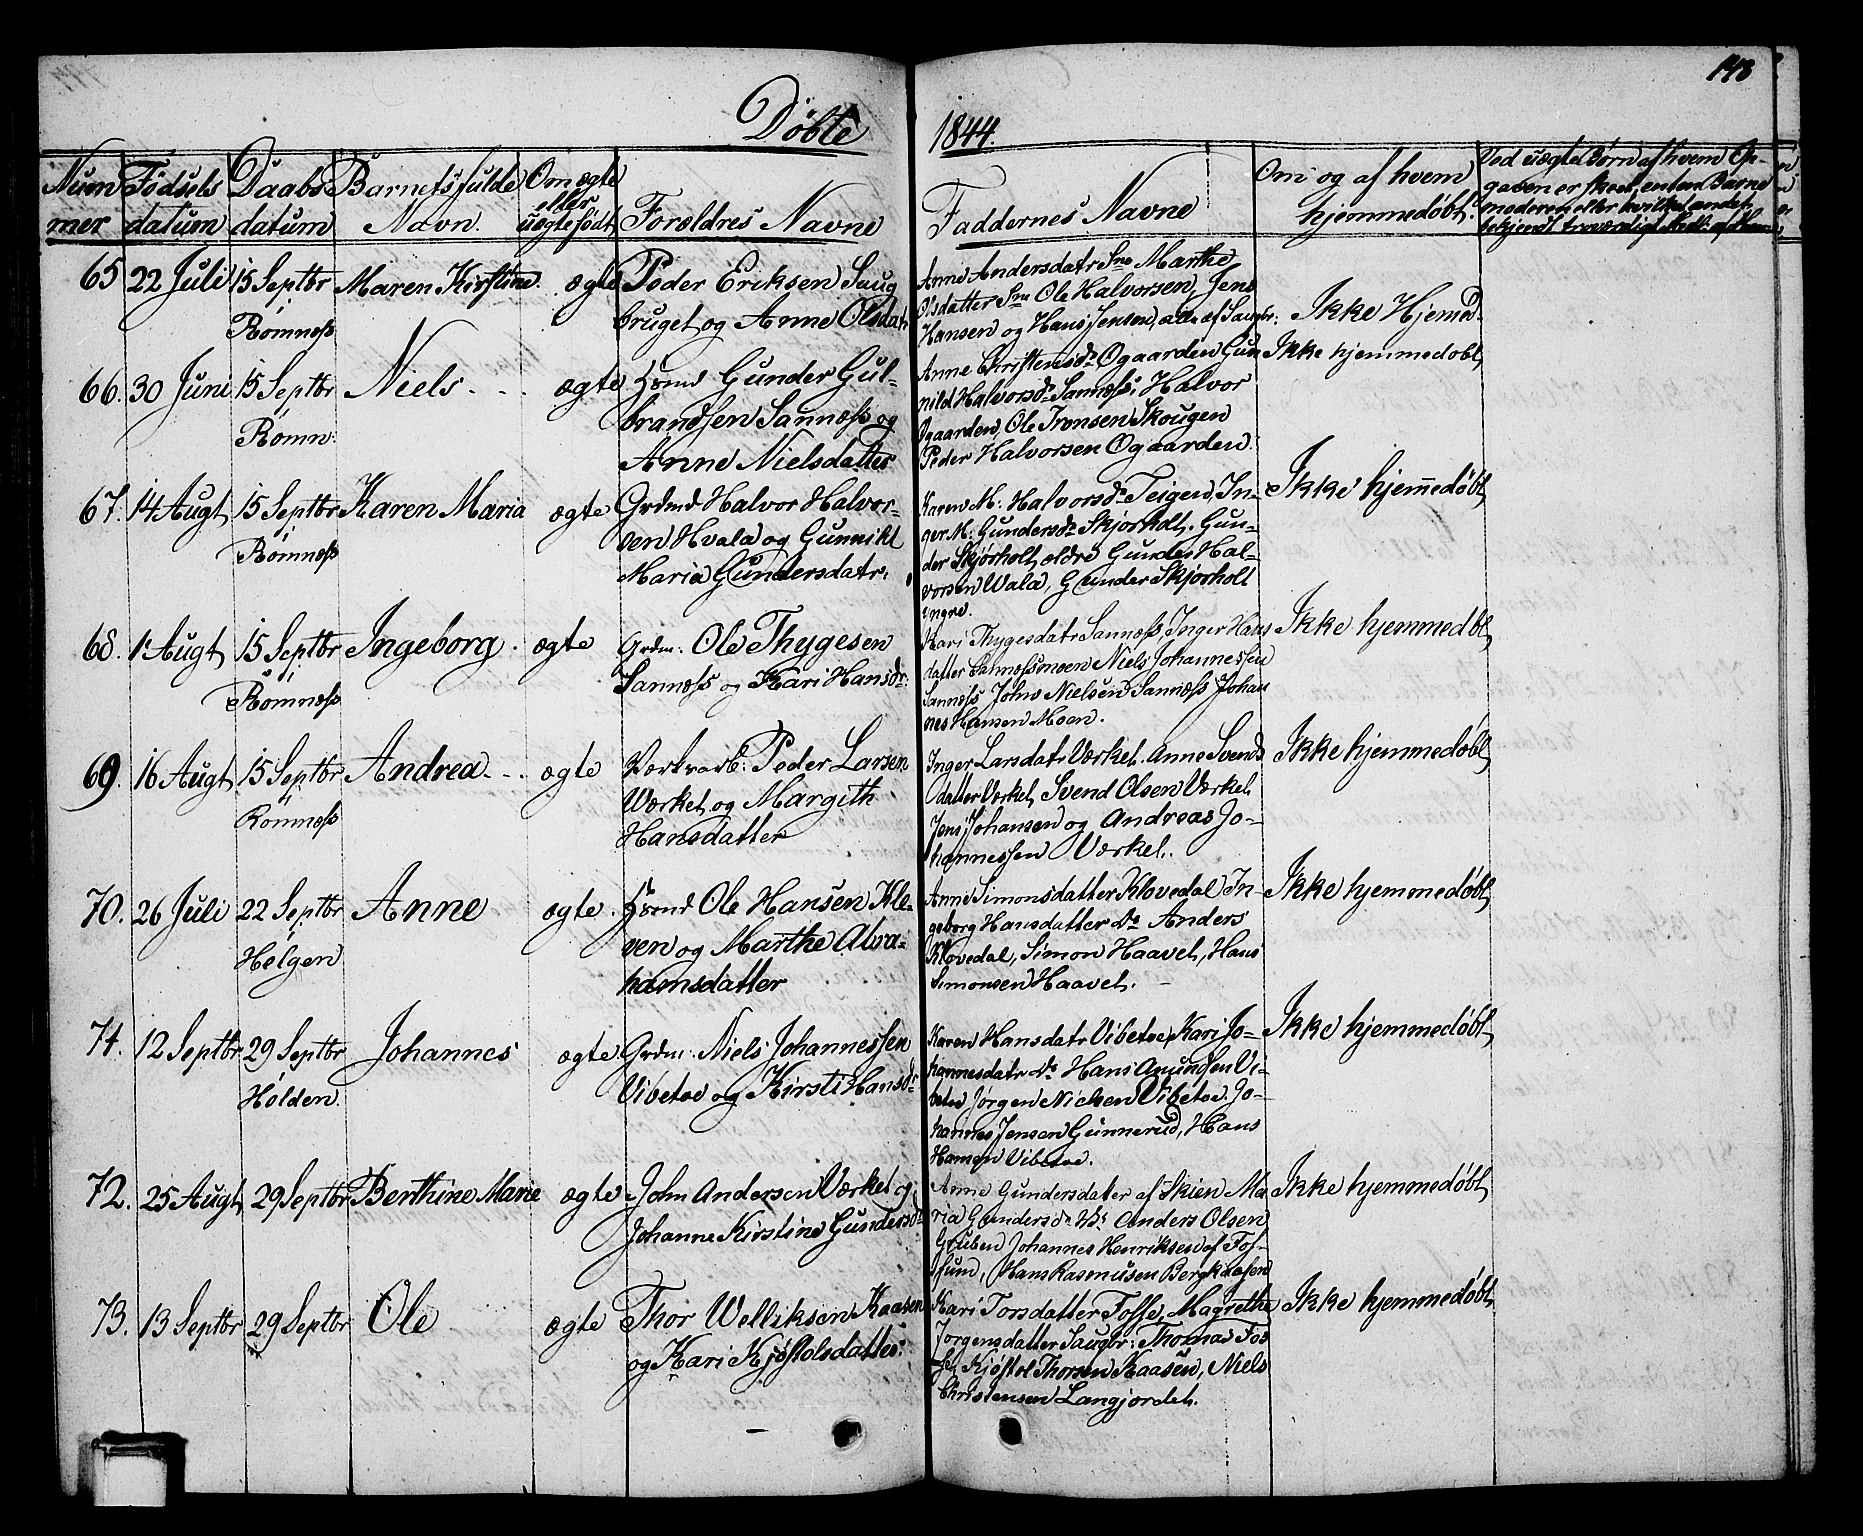 148
Döbte 1844.
Num mer
Födsels datum
Daabs datum
Barnets fulde Navn.
Om ægte eller uægte født
Forældres Navne
Faddernes Navne
Om og af hvem hjemmedøbt
Ved uægte Børn af hvem Op-
gaven er skeet, enten Barne
moderen eller hvilket andet
65 22 Juli 15 Septbr Maren Kirstine. ægte Peder Eriksen Saug
Römness bruget og Anne Olsdatr
Anne Andersdatr Sne Marthe
Olsdatter Sne Ole Halvorsen, Jens
Hansen og Hans Jensen, alle af Saugbr:
Ikke Hjemed.
66. 30 Juni 15 Septbr Niels ægte Huusmd Gunder Gul-
Römn: brandsen Sannæss og
Anne Nielsdatter
Anne Christensdr Ogaarden Gun
nild Halvorsdr Sannæss, Halvor
Ogaarden, Ole Tronsen Skougen
Peder Halvorsen Ogaarden
Ikke hjemmedøbt
67. 14 Augt 15 Septbr Karen Maria ægte Grdmd Halvor Halvor-
Römness sen Hvala og Gunnild
Maria Gundersdatr.
Karen M: Halvorsdr Teigen, In-
ger M: Gundersdr Skjorholt. Gun-
der Skjørholt ældre Gunder Hal-
vorsen Wala, Gunder Skjorholt
yngre.
Ikke hjemmedøbt
68. 1 Augt 15 Septbr Ingeborg. ægte Grdm: Ole Thygesen
Römness Sannæss og Kari Hansdr:
Kari Thygesdatr Sannæss, Inger Hans
datter Sannæssmoen Niels Johannessen
Sannæss John Nielsen Sannæss Johan
nes Hansen Moen.
Ikke hjemmedøbt
69. 16 Augt 15 Septbr Andrea ægte Værksarb: Peder Larsen
Römness Værket og Margith
Hansdatter
Inger Larsdatr Værket. Anne Svends
datter Værket, Svend Olsen Værket
Jens Johansen og Andreas Jo-
hannessen Værket.
Ikke hjemmedøbt
70. 26 Juli 22 Septbr Anne ægte. Huusmd Ole Hansen Kle-
Helgen ven og Marthe Abra-
hamsdatter
Anne Simonsdatter Klovedal In-
geborg Hansdatter Do Anders
Klovedal, Simon Haavet, Hans
Simonsen Haavet.
Ikke hjemmedøbt
71. 12 Septbr 29 Septbr Johannes ægte Grdm: Niels Johannessen
Holden. Vibetoe og Kirsti Hansdr
Karen Hansdatr Vibetoe, Kari Jo-
hannesdatr Do Hans Amundsen Vi-
betoe Jørgen Nielsen Vibetoe. Jo-
hannes Jensen Gunnerud, Hans
Hansen Vibetoe.
Ikke hjemmedøbt
72. 25 Augt 29 Septbr Berthine Marie ægte John Andersen Værket og
Johanne Kirstine Gundersdr
Anne Gundersdatter af Skien Ma
ria Gundersdr Do Anders Olsen
Gruben Johannes Henriksen af Fos-
sum, Hans Rasmusen Bergkaasen
Ikke hjemmedøbt
73. 13 Septbr 29 Septbr Ole ægte Thor Welliksen Kaasen
og Kari Kjøstolsdatter.
Kari Torsdatter Fosse, Magrethe
Jørgensdatter Saugbr: Thomas Fos
se, Kjøstol Thorsen Kaasen, Niels
Christensen Langjordet.
Ikke hjemmedøbt